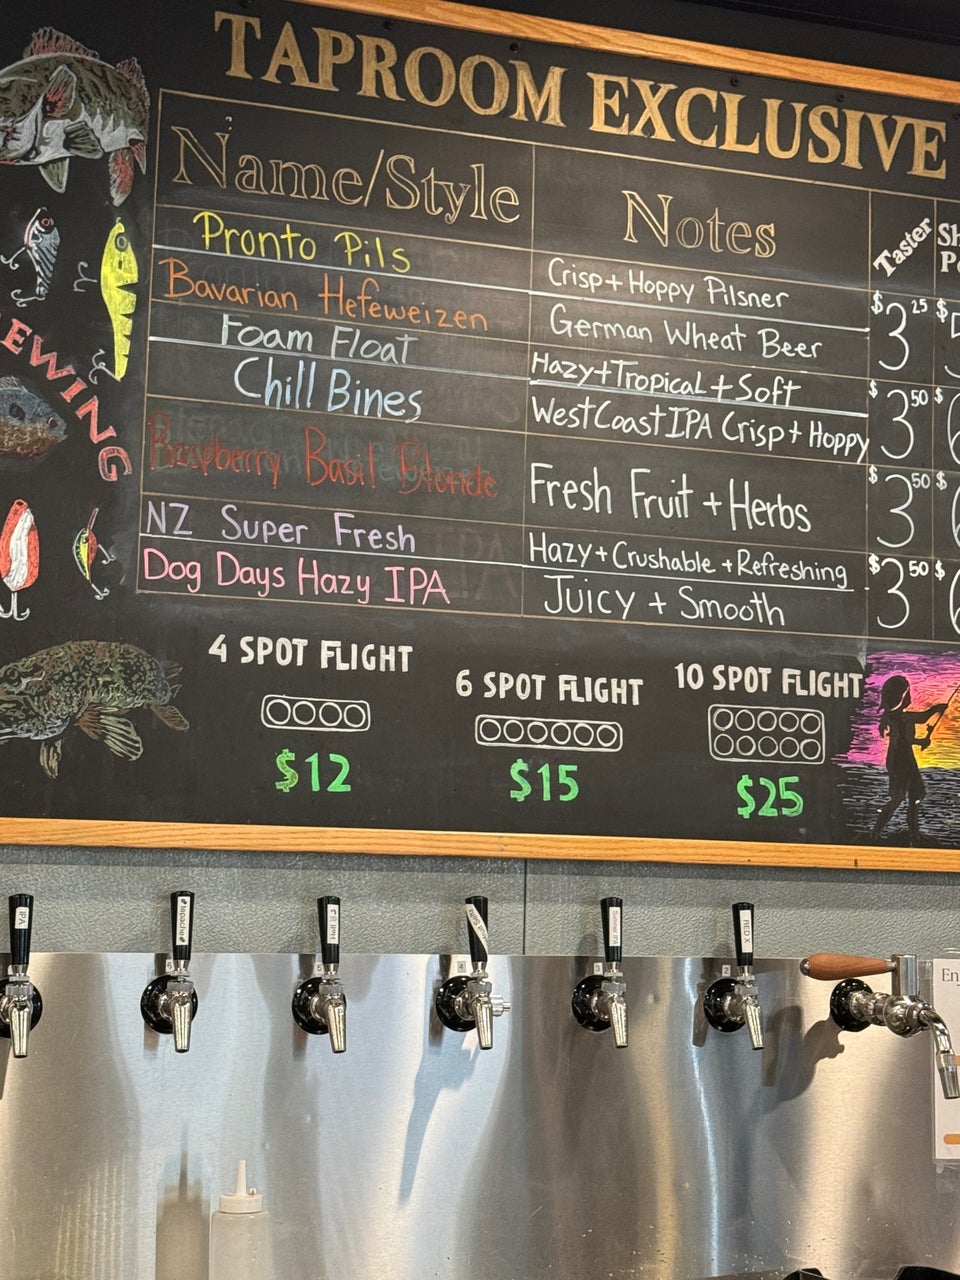 TAPROOM EXCLUSIVE
Name/Style Notes Taster
Pronto Pils Crisp + Hoppy Pilsner $3.25
Bavarian Hefeweizen German Wheat Beer
Foam Float Hazy + Tropical + Soft $3.50
Chill Bines West Coast IPA Crisp + Hoppy
Raspberry Basil Blonde Fresh Fruit + Herbs $3.50
NZ Super Fresh Hazy + Crushable + Refreshing $3.50
Dog Days Hazy IPA Juicy + Smooth
EWING
4 SPOT FLIGHT 6 SPOT FLIGHT 10 SPOT FLIGHT
$12 $15 $25
IPA
tepache
RED X
6
5
4
3
2